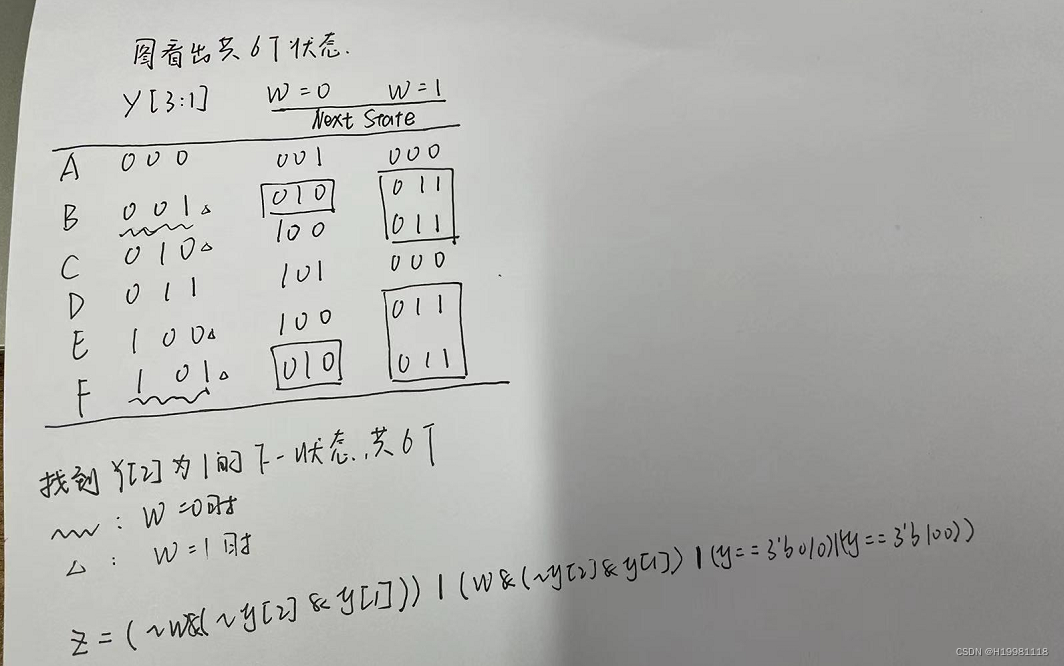 图看出共6个状态.
Y[3:1] W=0 W=1
Next State
A 000 001 000
B 001△ 010 011
C 010△ 100 011
D 011 101 000
E 100△ 100 011
F 101△ 010 011
找到Y[2]为1的下一状态.,共6个
﹏: W=0时
△: W=1时
z=(~w&(~y[2]&y[1]))|(w&(~y[2]&y[1])|(y==3'b010)|(y==3'b100))
CSDN @H19981118